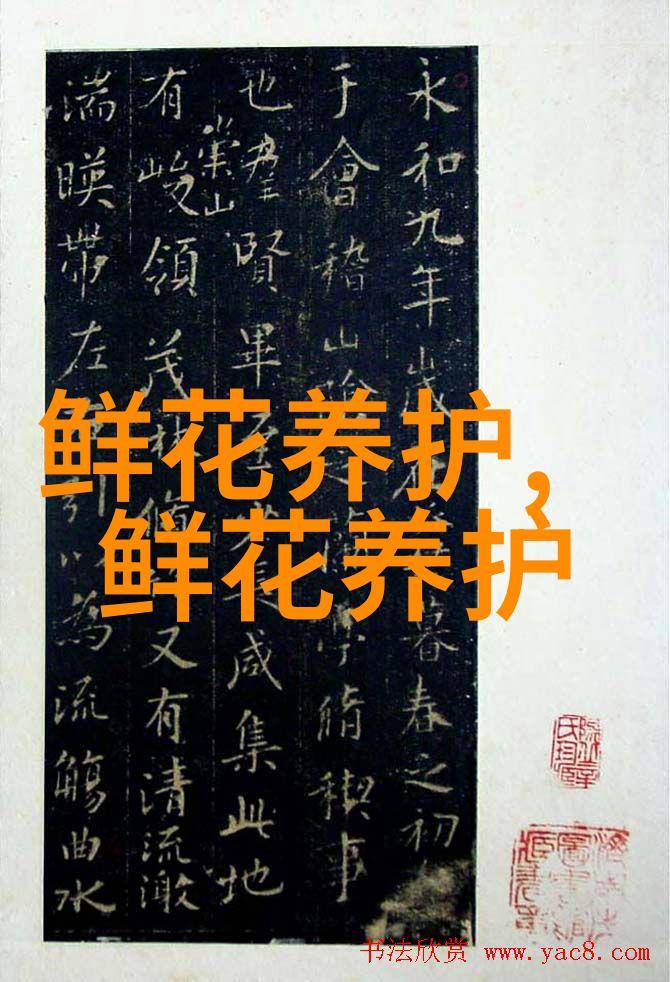 永和九年歲暮春之初
于會稽山陰蘭亭脩稧事
也羣賢畢至咸集此地
有崇山峻領茂林又有清流激
湍暎帶左引以為流觴曲水
鲜花养护,
鲜花养护
书法欣赏 www.yac8.com